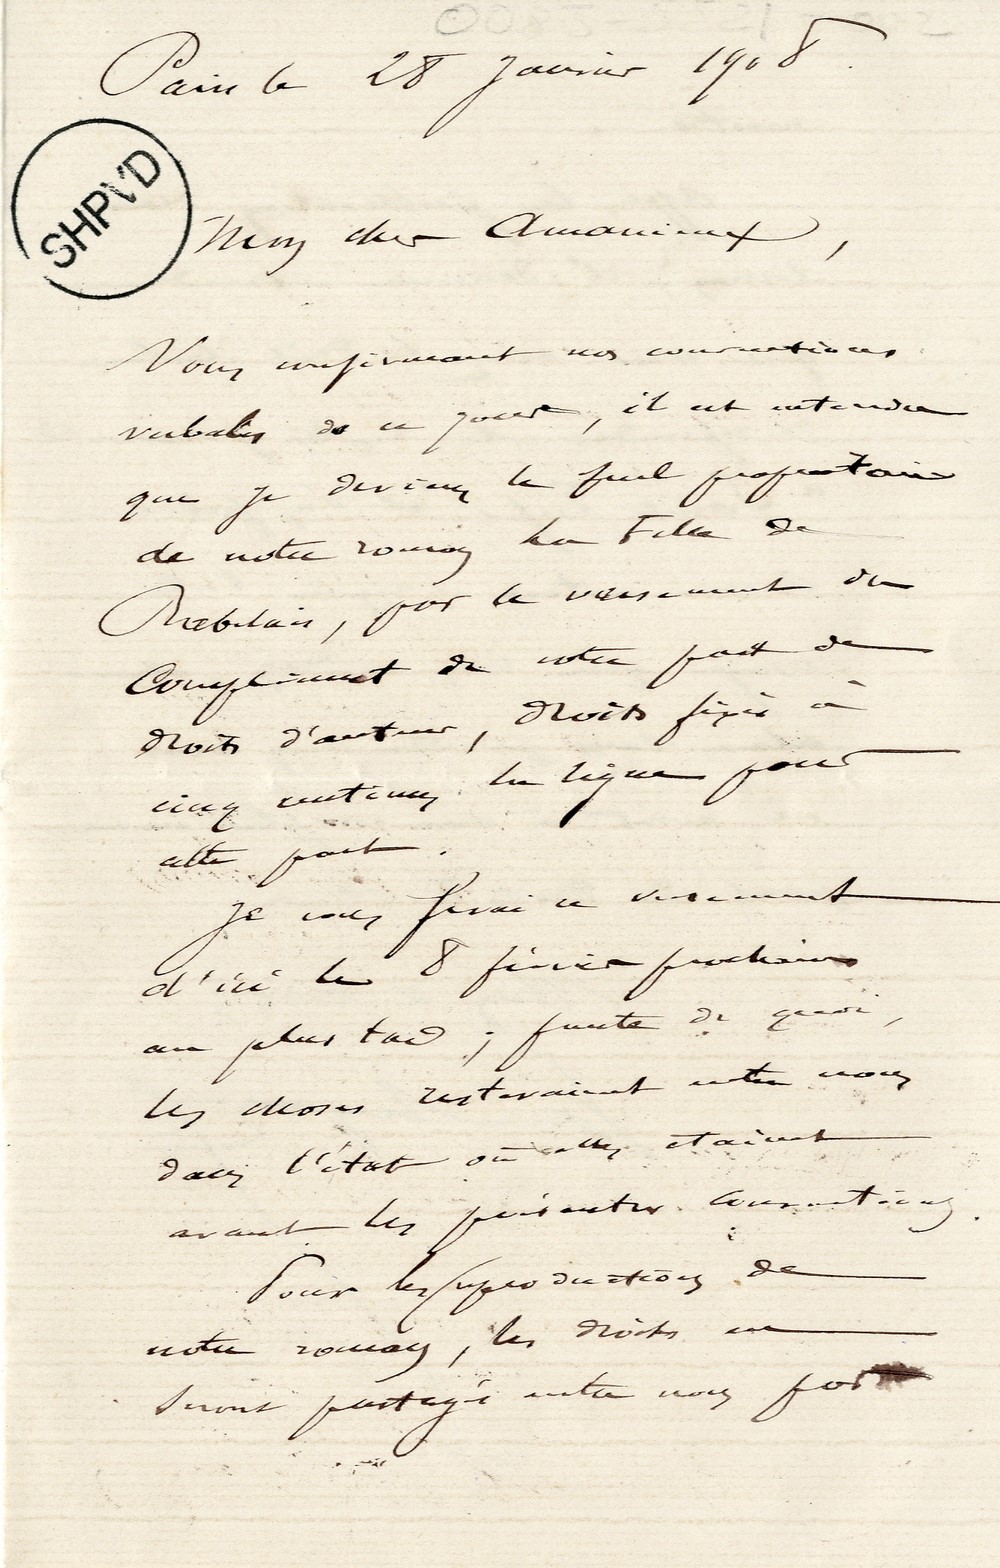 Paris le 28 Janvier 1908.
SHPVD
Mon cher Amanieux,
Vous confirmant nos conventions
verbales de ce jour, il est entendu
que je deviens le seul propriétaire
de notre roman La Fille de
Rabelais, par le versement du
complément de votre part de
droits d'auteur, droits fixés à
cinq centimes la ligne pour
cette part.
Je vous ferai ce versement
d'ici le 8 février prochain
au plus tard ; faute de quoi,
les choses resteraient entre nous
dans l'état où elles étaient
avant les présentes conventions.
Pour les reproductions de
notre roman, les droits en
seront partagés entre nous par